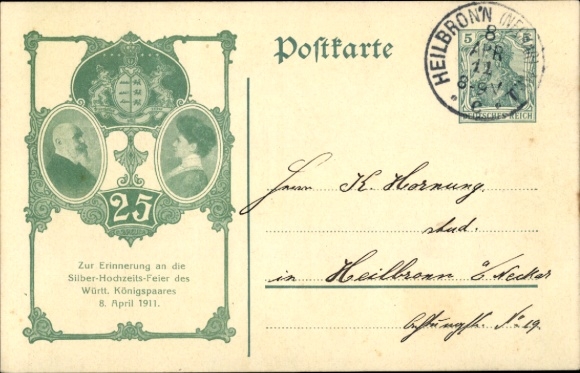 Postkarte
HEILBRONN
8
APR
11
5
DEUTSCHES REICH
25
Zur Erinnerung an die
Silber-Hochzeits-Feier des
Württ. Königspaares
8. April 1911.
Herrn K. Hornung.
stud.
in Heilbronn a/Neckar
No 29